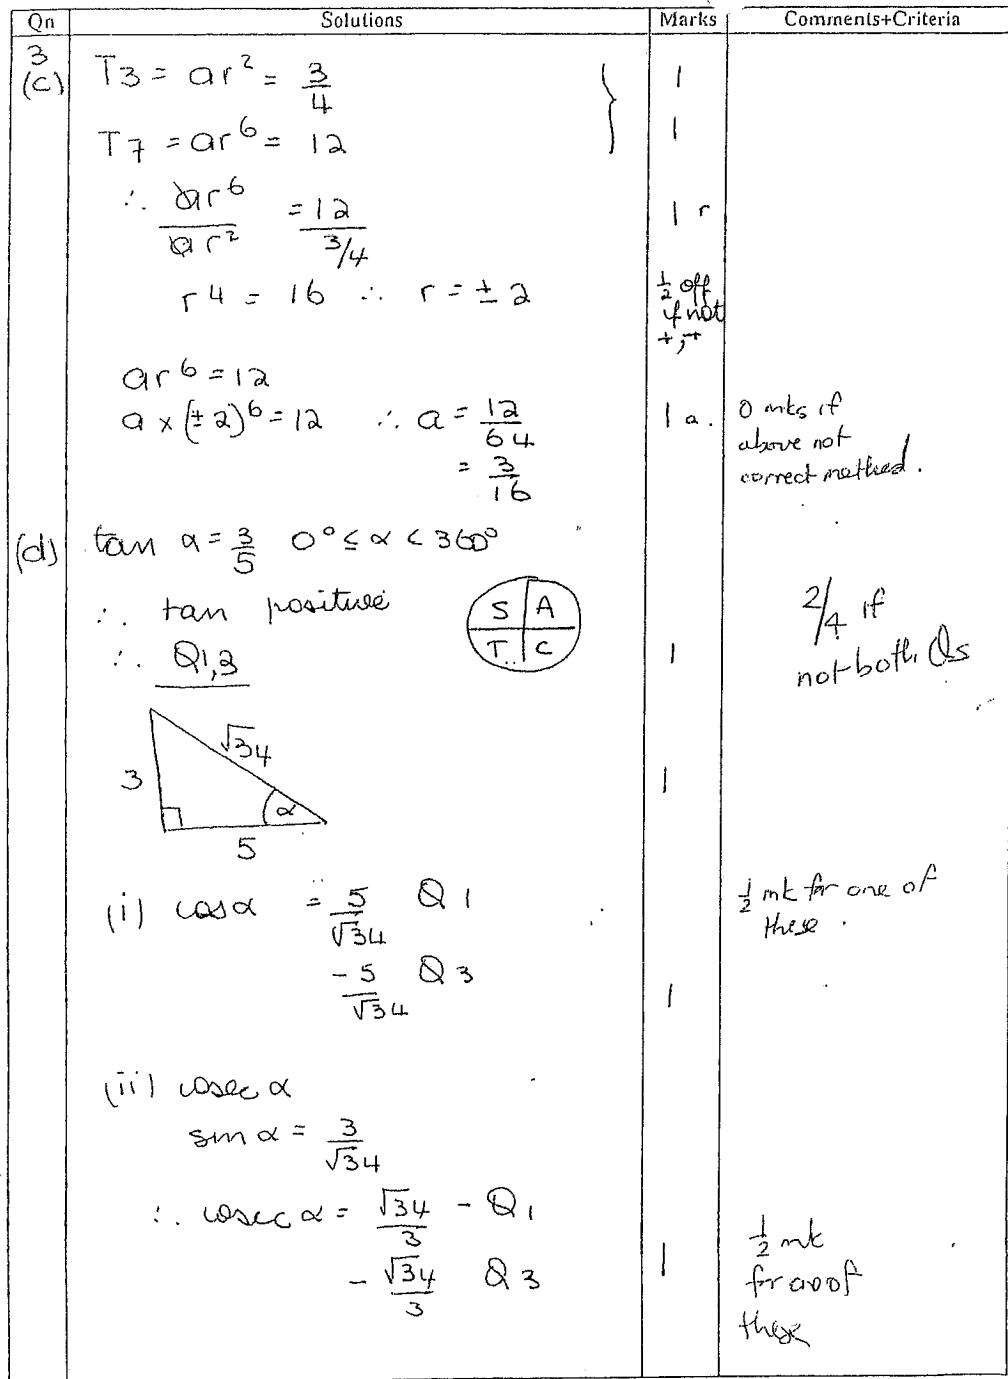 Qn Solutions Marks Comments+Criteria
3
(c) T3 = ar² = 3/4 } 1
T7 = ar⁶ = 12 1
∴ ar⁶/ar² = 12/(3/4) 1 r
r⁴ = 16 ∴ r = ± 2 ½ off
if not
+,-
ar⁶ = 12
a × (± 2)⁶ = 12 ∴ a = 12/64 1 a. 0 mks if
above not
= 3/16 correct method.
(d) tan α = 3/5 0° ≤ α < 360°
∴ tan positive S A 2/4 if
∴ Q1,3 T C 1 not both Qs
√34
3 1
α
5
(i) cos α = 5/√34 Q1 ½ mk for one of
these.
-5/√34 Q3 1
(ii) cosec α
sin α = 3/√34
∴ cosec α = √34/3 - Q1
½ mk
- √34/3 Q3 1 for
of
these